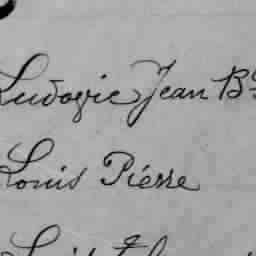 Ludovic Jean B
Louis Pierre